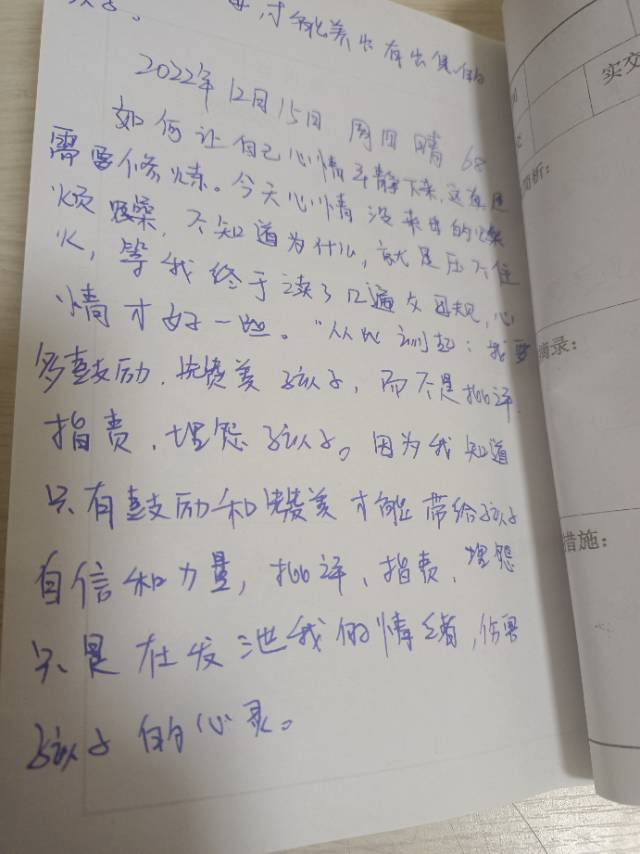 孩子。
才能养出有出息的
2022年12月15日 周四 晴 68
如何让自己心情平静下来,这真是
需要修炼。今天心情没来由的燥
烦躁,不知道为什么,就是压不住
火,等我终于读了几遍父母规,心
情才好一些。"从此刻起:我要
多鼓励、赞美孩子,而不是批评、
指责、埋怨孩子。因为我知道
只有鼓励和赞美才能带给孩子
自信和力量,批评、指责、埋怨
只是在发泄我的情绪,伤害
孩子的心灵。
实交
简析:
摘录:
措施: